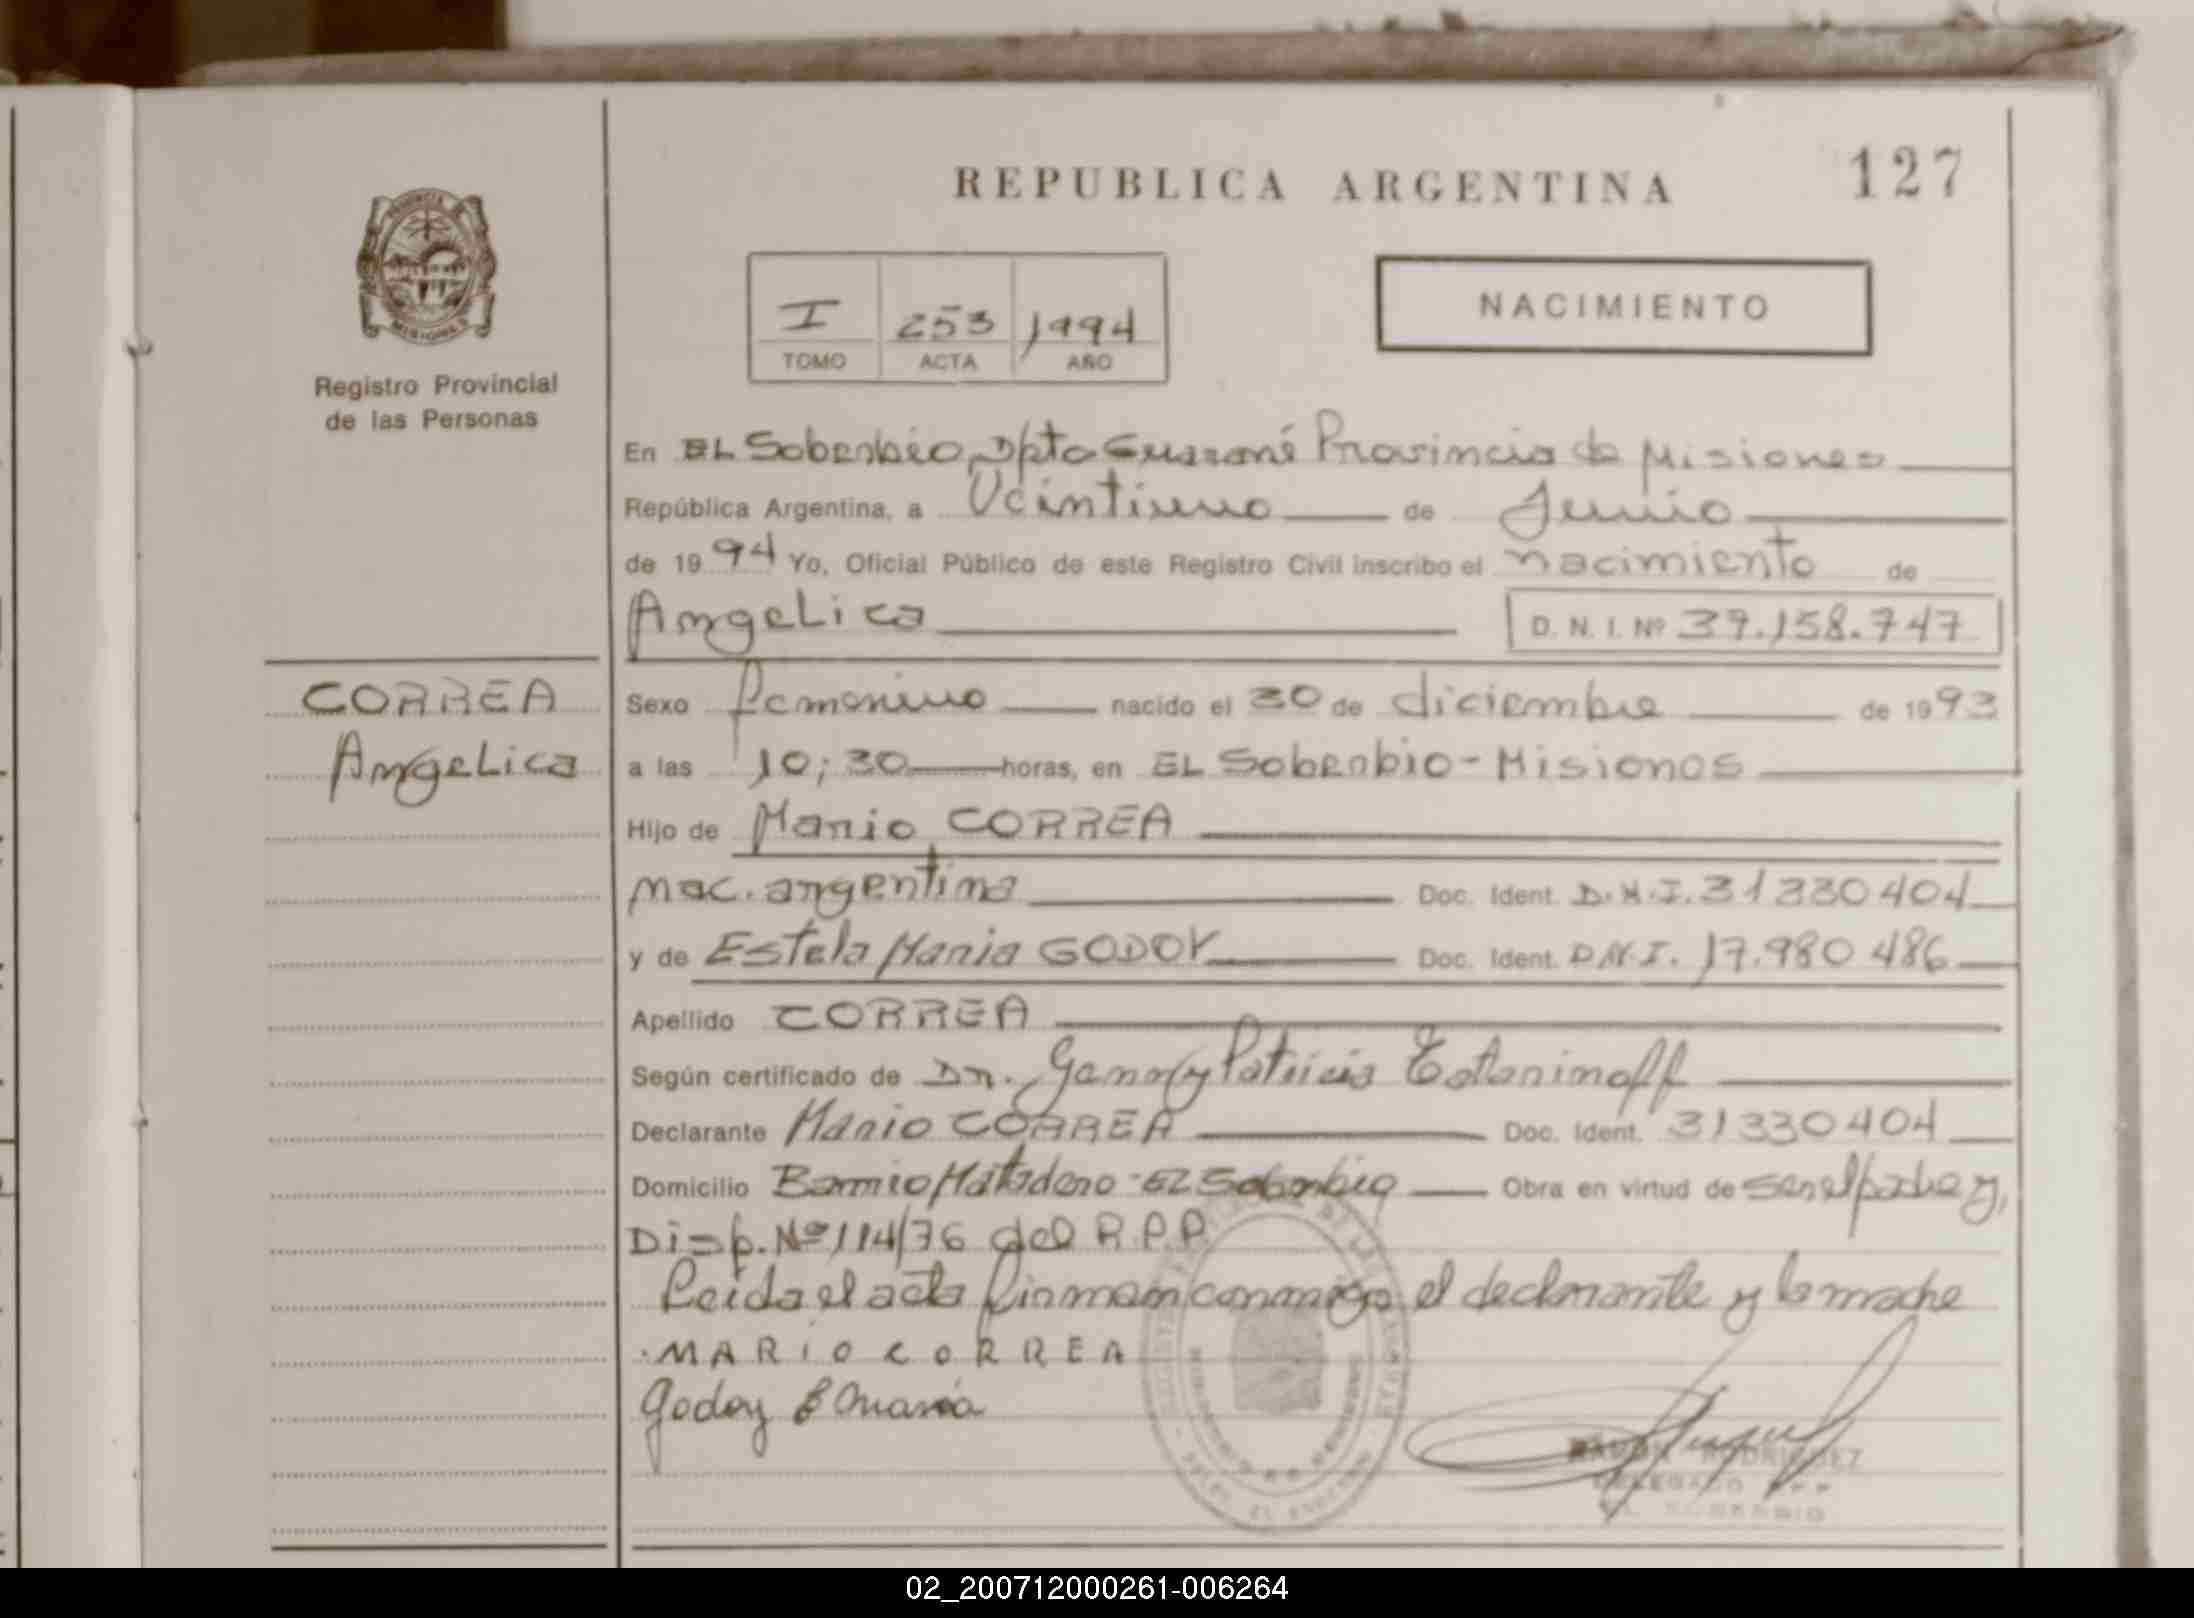 REPUBLICA ARGENTINA
127
NACIMIENTO
I 253 1994
TOMO ACTA AÑO
Registro Provincial
de las Personas
En EL Soberbio Dpto Guaraní Provincia de Misiones
República Argentina, a Veintiuno de Junio
de 1994 Yo, Oficial Público de este Registro Civil inscribo el nacimiento de
Angelica D. N. I. Nº 37.158.747
CORREA
Angelica
Sexo femenino nacido el 30 de diciembre de 1993
a las 10;30 horas, en EL Soberbio - Misiones
Hijo de Mario CORREA
nac. argentina Doc. Ident. D.N.I. 31330404
y de Estela Maria GODOY Doc. Ident. D.N.I. 17.980486
Apellido CORREA
Según certificado de Dr. Patricia
Declarante Mario CORREA Doc. Ident. 31330404
Domicilio Barrio Matadero - EL Soberbio Obra en virtud de ser el padre y,
Disp. Nº 114/76 del R.P.P
Leida el acta firman conmigo el declarante y la madre
MARIO CORREA
Godoy E Maria
RAMON RODRIGUEZ
DELEGADO R P P
EL SOBERBIO
02_200712000261-006264